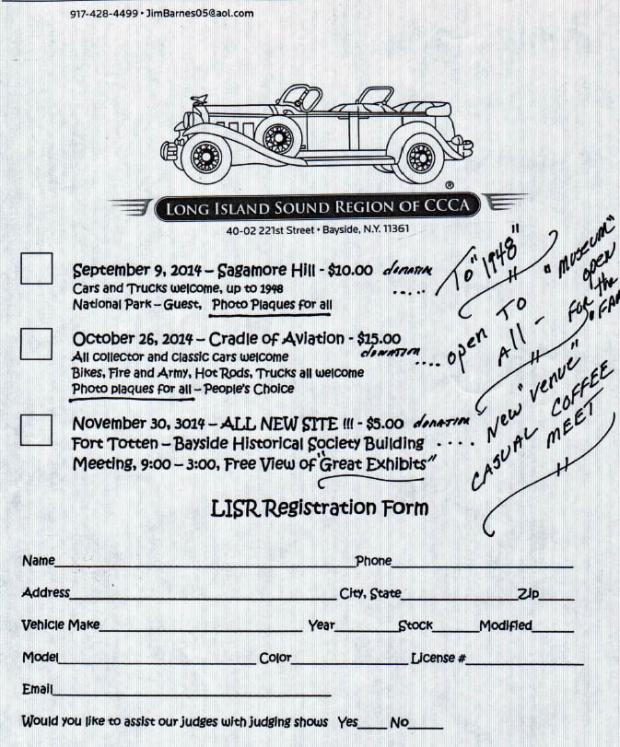 917-428-4499 • JimBarnes05@aol.com
LONG ISLAND SOUND REGION OF CCCA
40-02 221st Street • Bayside, N.Y. 11361
September 9, 2014 – Sagamore Hill - $10.00 donation
Cars and Trucks welcome, up to 1948 ..... To "1948"
National Park – Guest, Photo Plaques for all
October 26, 2014 – Cradle of Aviation - $15.00
All Collector and Classic Cars welcome donation .... open To All - "MUSEUM" open For the
Bikes, Fire and Army, Hot Rods, Trucks all welcome
Photo plaques for all – People's Choice
November 30, 3014 – ALL NEW SITE !!! - $5.00 donation
Fort Totten – Bayside Historical Society Building .... New "Venue"
Meeting, 9:00 – 3:00, Free View of "Great Exhibits" CASUAL COFFEE MEET
LISR Registration Form
Name Phone
Address City, State Zip
Vehicle Make Year Stock Modified
Model Color License #
Email
Would you like to assist our judges with judging shows Yes No